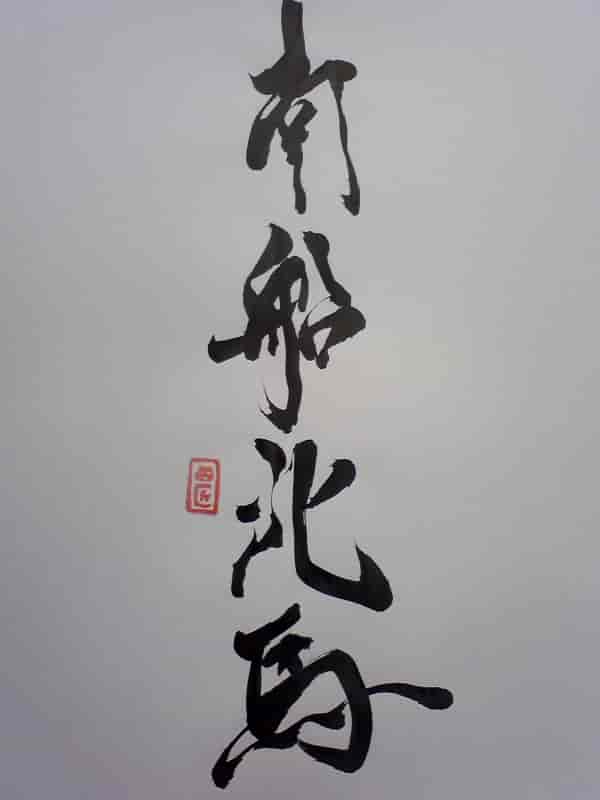 南船北馬